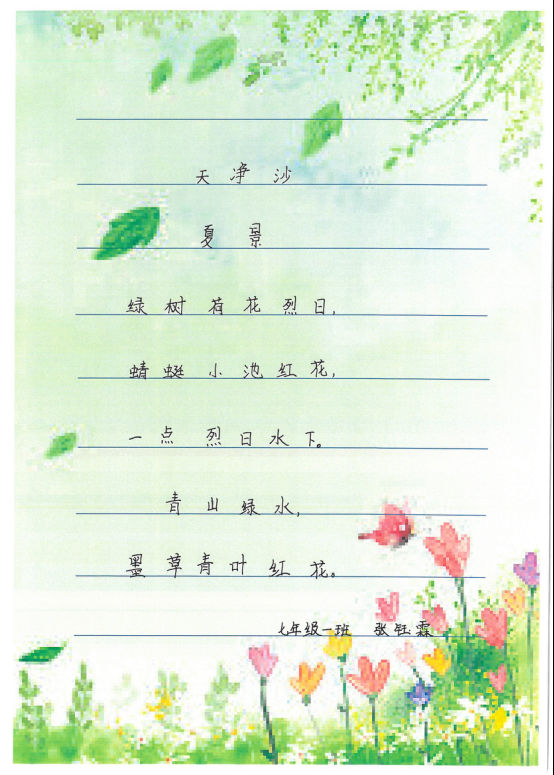 天净沙
夏景
绿树荷花烈日，
蜻蜓小池红花，
一点烈日水下。
青山绿水，
墨草青叶红花。
七年级一班 张钰霖